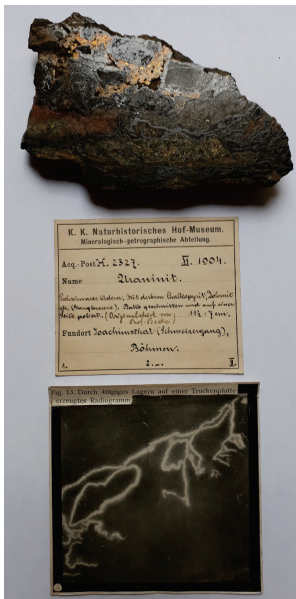 K. K. Naturhistorisches Hof-Museum.
Mineralogisch-petrographische Abteilung.
Acq.-Post H. 2327. XI. 1904.
Name Uraninit.
mit derbem Chalkopyrit, Dolomit
etc. Platte geschnitten und auf einer
Seite poliert. (Originalstück von
Prof. Becke) 11½ : 7 cm.
Fundort Joachimsthal (Schweizergang),
Böhmen.
1. 2.–. V.
Fig. 13. Durch 48tägiges Lagern auf einer Trockenplatte
erzeugtes Radiogramm